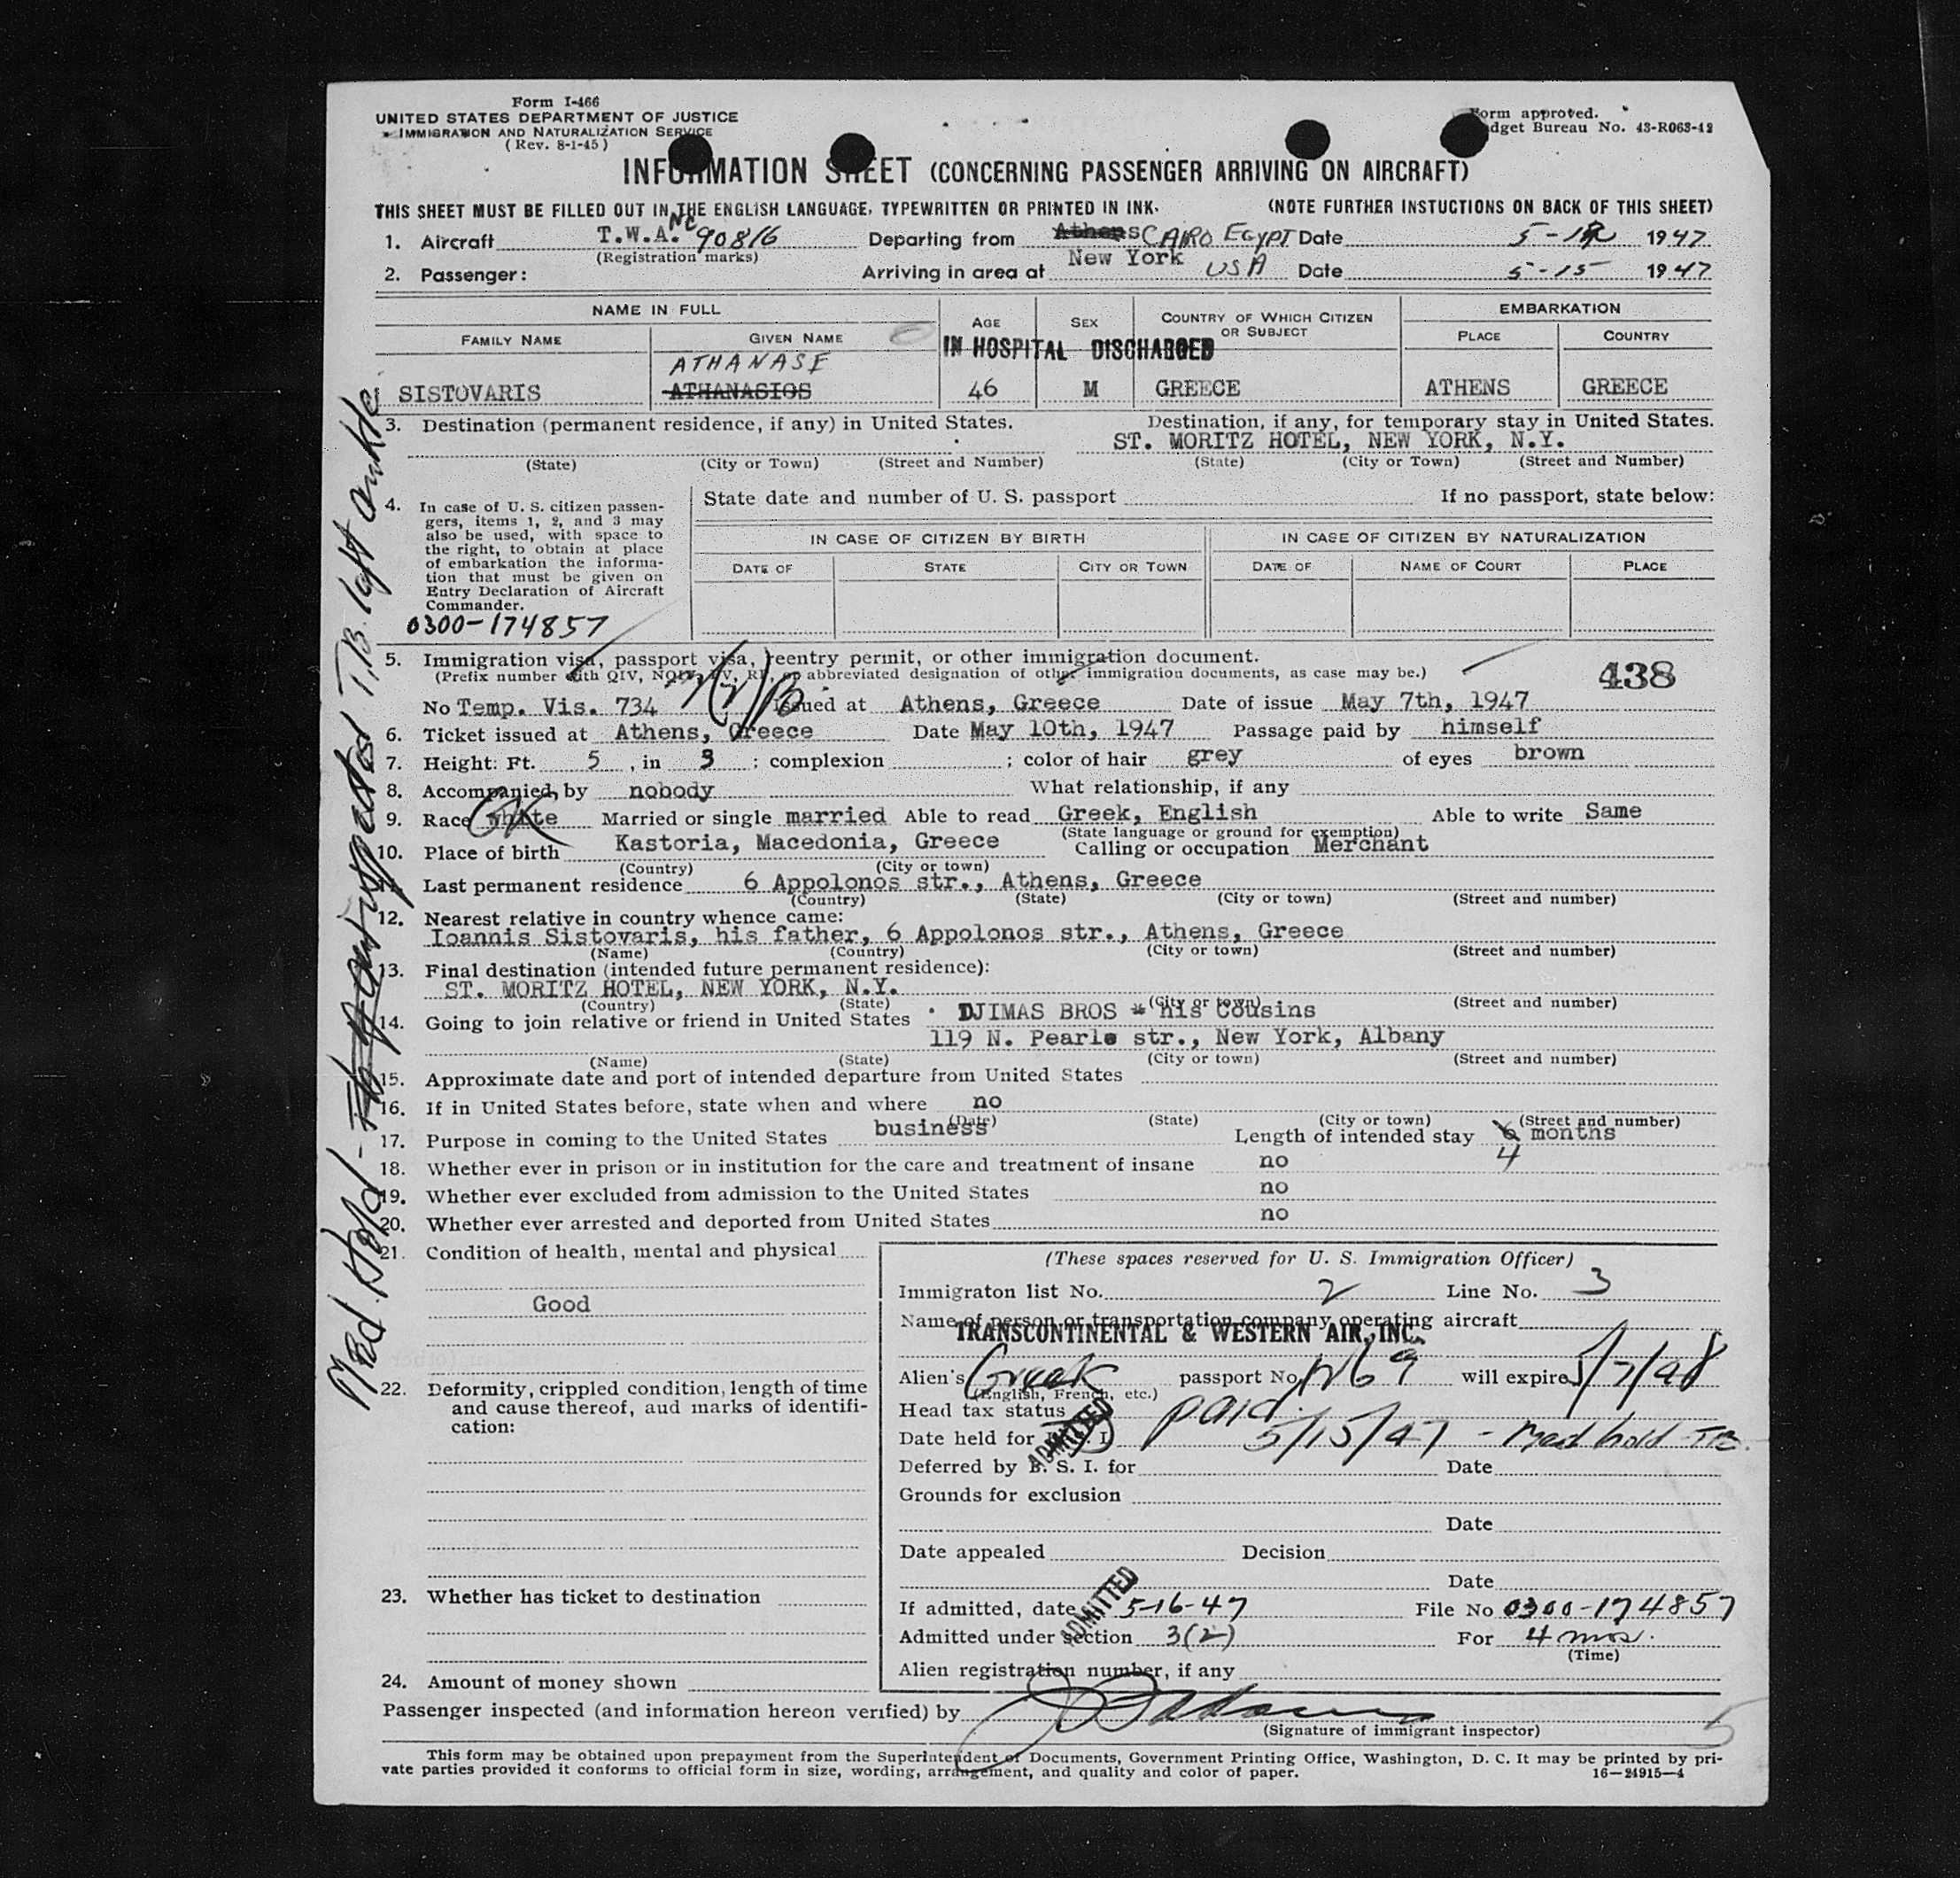 Form I-466
UNITED STATES DEPARTMENT OF JUSTICE
IMMIGRATION AND NATURALIZATION SERVICE
(Rev. 8-1-45)
Form approved.
Budget Bureau No. 43-R063-42
INFORMATION SHEET (CONCERNING PASSENGER ARRIVING ON AIRCRAFT)
THIS SHEET MUST BE FILLED OUT IN THE ENGLISH LANGUAGE, TYPEWRITTEN OR PRINTED IN INK.
(NOTE FURTHER INSTUCTIONS ON BACK OF THIS SHEET)
1. Aircraft T.W.A. NC 90816 Departing from Athens CAIRO EGYPT Date 5-12 1947
(Registration marks)
2. Passenger: Arriving in area at New York USA Date 5-15 1947
NAME IN FULL
FAMILY NAME
GIVEN NAME
AGE
SEX
COUNTRY OF WHICH CITIZEN OR SUBJECT
EMBARKATION
PLACE
COUNTRY
IN HOSPITAL DISCHARGED
ATHANASE
SISTOVARIS ATHANASIOS 46 M GREECE ATHENS GREECE
3. Destination (permanent residence, if any) in United States.
Destination, if any, for temporary stay in United States.
ST. MORITZ HOTEL, NEW YORK, N.Y.
(State) (City or Town) (Street and Number) (State) (City or Town) (Street and Number)
4. In case of U. S. citizen passen-
gers, items 1, 2, and 3 may
also be used, with space to
the right, to obtain at place
of embarkation the informa-
tion that must be given on
Entry Declaration of Aircraft
Commander.
0300-174857
State date and number of U. S. passport If no passport, state below:
IN CASE OF CITIZEN BY BIRTH
IN CASE OF CITIZEN BY NATURALIZATION
DATE OF STATE CITY OR TOWN DATE OF NAME OF COURT PLACE
5. Immigration visa, passport visa, reentry permit, or other immigration document.
(Prefix number with QIV, NQIV, PV, RP, or abbreviated designation of other immigration documents, as case may be.)
438
No Temp. Vis. 734 3(2)B Issued at Athens, Greece Date of issue May 7th, 1947
6. Ticket issued at Athens, Greece Date May 10th, 1947 Passage paid by himself
7. Height: Ft. 5, in 3; complexion ; color of hair grey of eyes brown
8. Accompanied by nobody What relationship, if any
9. Race white GK Married or single married Able to read Greek, English Able to write Same
(State language or ground for exemption)
10. Place of birth Kastoria, Macedonia, Greece Calling or occupation Merchant
(Country) (City or town)
11. Last permanent residence 6 Appolonos str., Athens, Greece
(Country) (State) (City or town) (Street and number)
12. Nearest relative in country whence came:
Ioannis Sistovaris, his father, 6 Appolonos str., Athens, Greece
(Name) (Country) (City or town) (Street and number)
13. Final destination (intended future permanent residence):
ST. MORITZ HOTEL, NEW YORK, N.Y.
(Country) (State) (City or town) (Street and number)
14. Going to join relative or friend in United States DJIMAS BROS * his Cousins
119 N. Pearle str., New York, Albany
(Name) (State) (City or town) (Street and number)
15. Approximate date and port of intended departure from United States
16. If in United States before, state when and where no
(Date) (State) (City or town) (Street and number)
17. Purpose in coming to the United States business Length of intended stay 6 months
4
18. Whether ever in prison or in institution for the care and treatment of insane no
19. Whether ever excluded from admission to the United States no
20. Whether ever arrested and deported from United States no
21. Condition of health, mental and physical
Good
22. Deformity, crippled condition, length of time
and cause thereof, and marks of identifi-
cation:
23. Whether has ticket to destination
24. Amount of money shown
(These spaces reserved for U. S. Immigration Officer)
Immigraton list No. 2 Line No. 3
Name of person or transportation company operating aircraft
TRANSCONTINENTAL & WESTERN AIR, INC.
Alien's Greek passport No. 1269 will expire 5/7/48
(English, French, etc.)
Head tax status paid.
ADMITTED
Date held for B. S. I. 5/15/47 - Med hold TB.
Deferred by B. S. I. for Date
Grounds for exclusion
Date
Date appealed Decision
Date
ADMITTED
If admitted, date 5-16-47 File No 0300-174857
Admitted under section 3(2) For 4 mos.
(Time)
Alien registration number, if any
Passenger inspected (and information hereon verified) by
(Signature of immigrant inspector)
5
This form may be obtained upon prepayment from the Superintendent of Documents, Government Printing Office, Washington, D. C. It may be printed by pri-
vate parties provided it conforms to official form in size, wording, arrangement, and quality and color of paper.
16—24915—4
Med. Hold - suspected T.B. left ankle